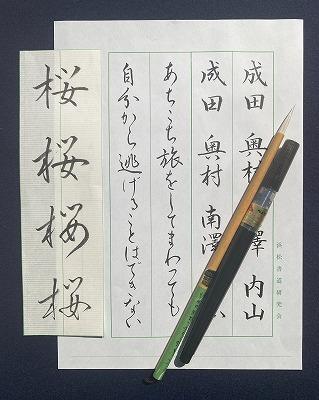 浜松書道研究会
成田 奥村 澤 内山
成田 奥村 南澤
あちこち旅をしてまわっても
自分から逃げることはできない
桜 桜 桜 桜